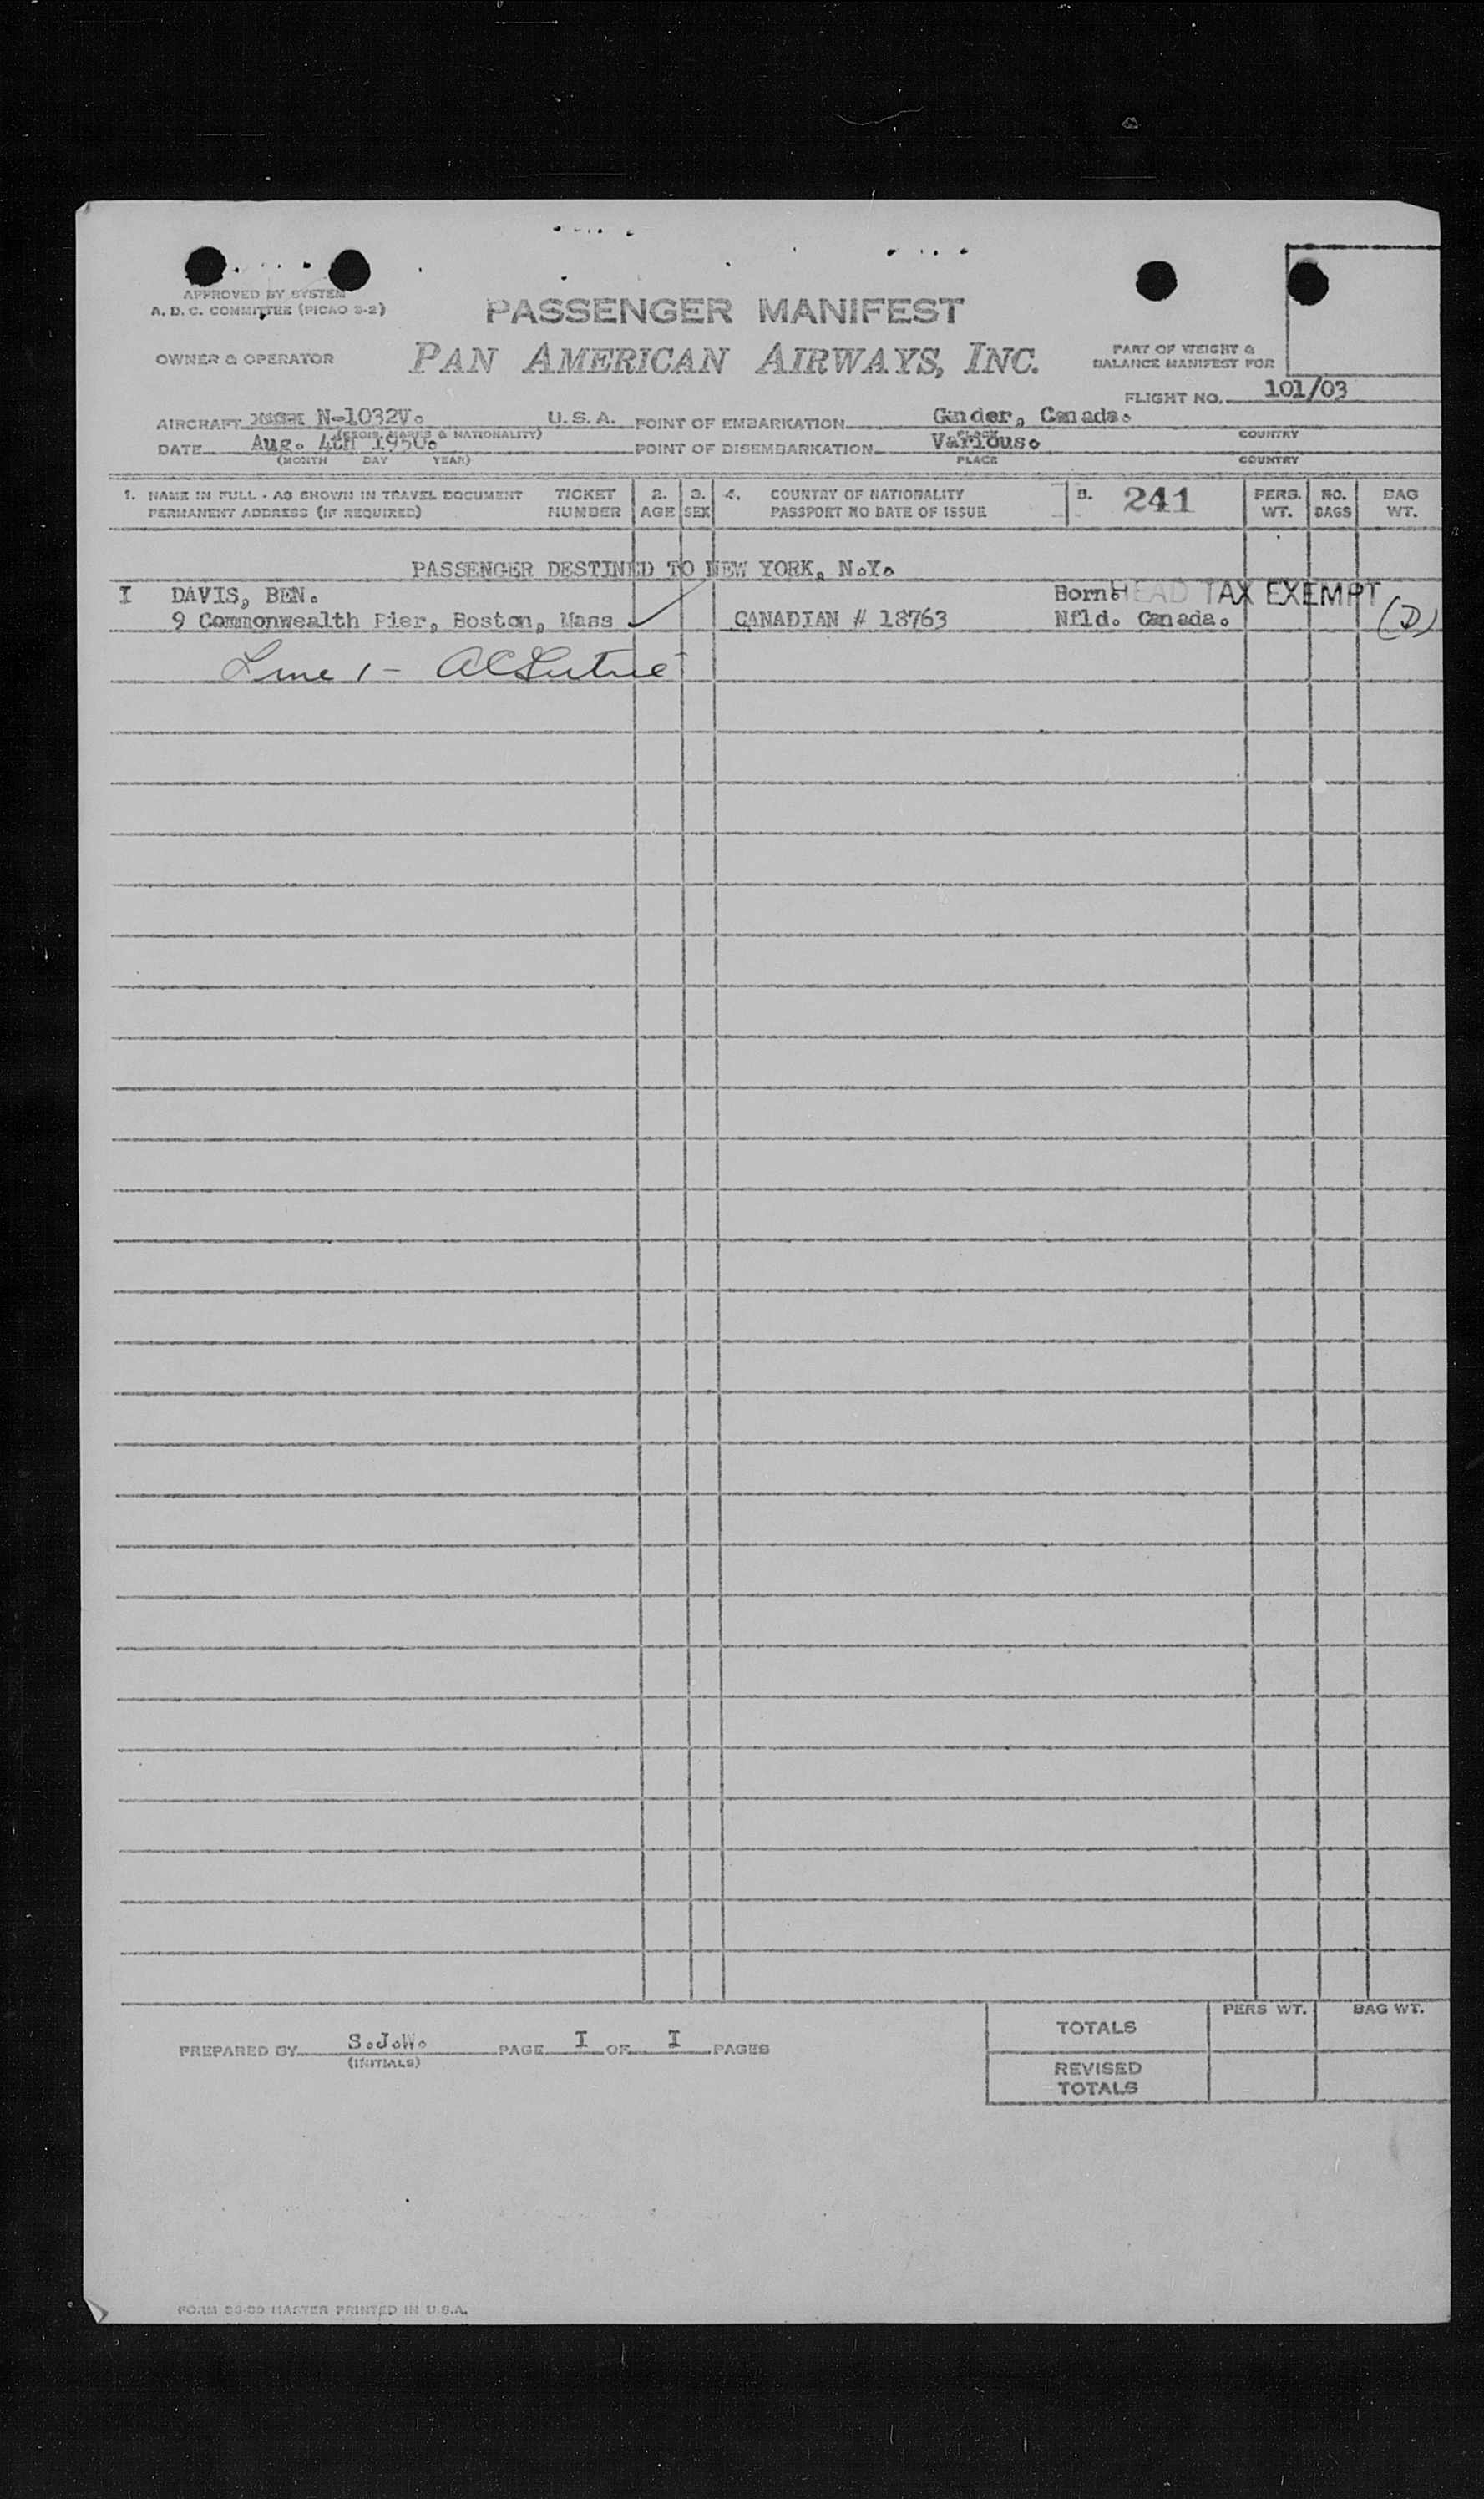 APPROVED BY SYSTEM
A. D. C. COMMITTEE (PICAO S-2)
PASSENGER MANIFEST
OWNER & OPERATOR
PAN AMERICAN AIRWAYS, INC.
PART OF WEIGHT &
BALANCE MANIFEST FOR
FLIGHT NO. 101/03
AIRCRAFT N-1032V. U.S.A. POINT OF EMBARKATION Gander, Canada.
MARKS & NATIONALITY) COUNTRY
DATE Aug. 4th 1950. POINT OF DISEMBARKATION Various.
(MONTH DAY YEAR) PLACE COUNTRY
1. NAME IN FULL - AS SHOWN IN TRAVEL DOCUMENT TICKET 2. 3. 4. COUNTRY OF NATIONALITY 5. 241 PERS. NO. BAG
PERMANENT ADDRESS (IF REQUIRED) NUMBER AGE SEX PASSPORT NO DATE OF ISSUE WT. BAGS WT.
PASSENGER DESTINED TO NEW YORK, N.Y.
I DAVIS, BEN. Born: HEAD TAX EXEMPT
9 Commonwealth Pier, Boston, Mass CANADIAN # 18763 Nfld. Canada. (D)
Line 1 -
PERS WT. BAG WT.
TOTALS
PREPARED BY S.J.W. PAGE I OF I PAGES
(INITIALS)
REVISED
TOTALS
MASTER PRINTED IN U.S.A.